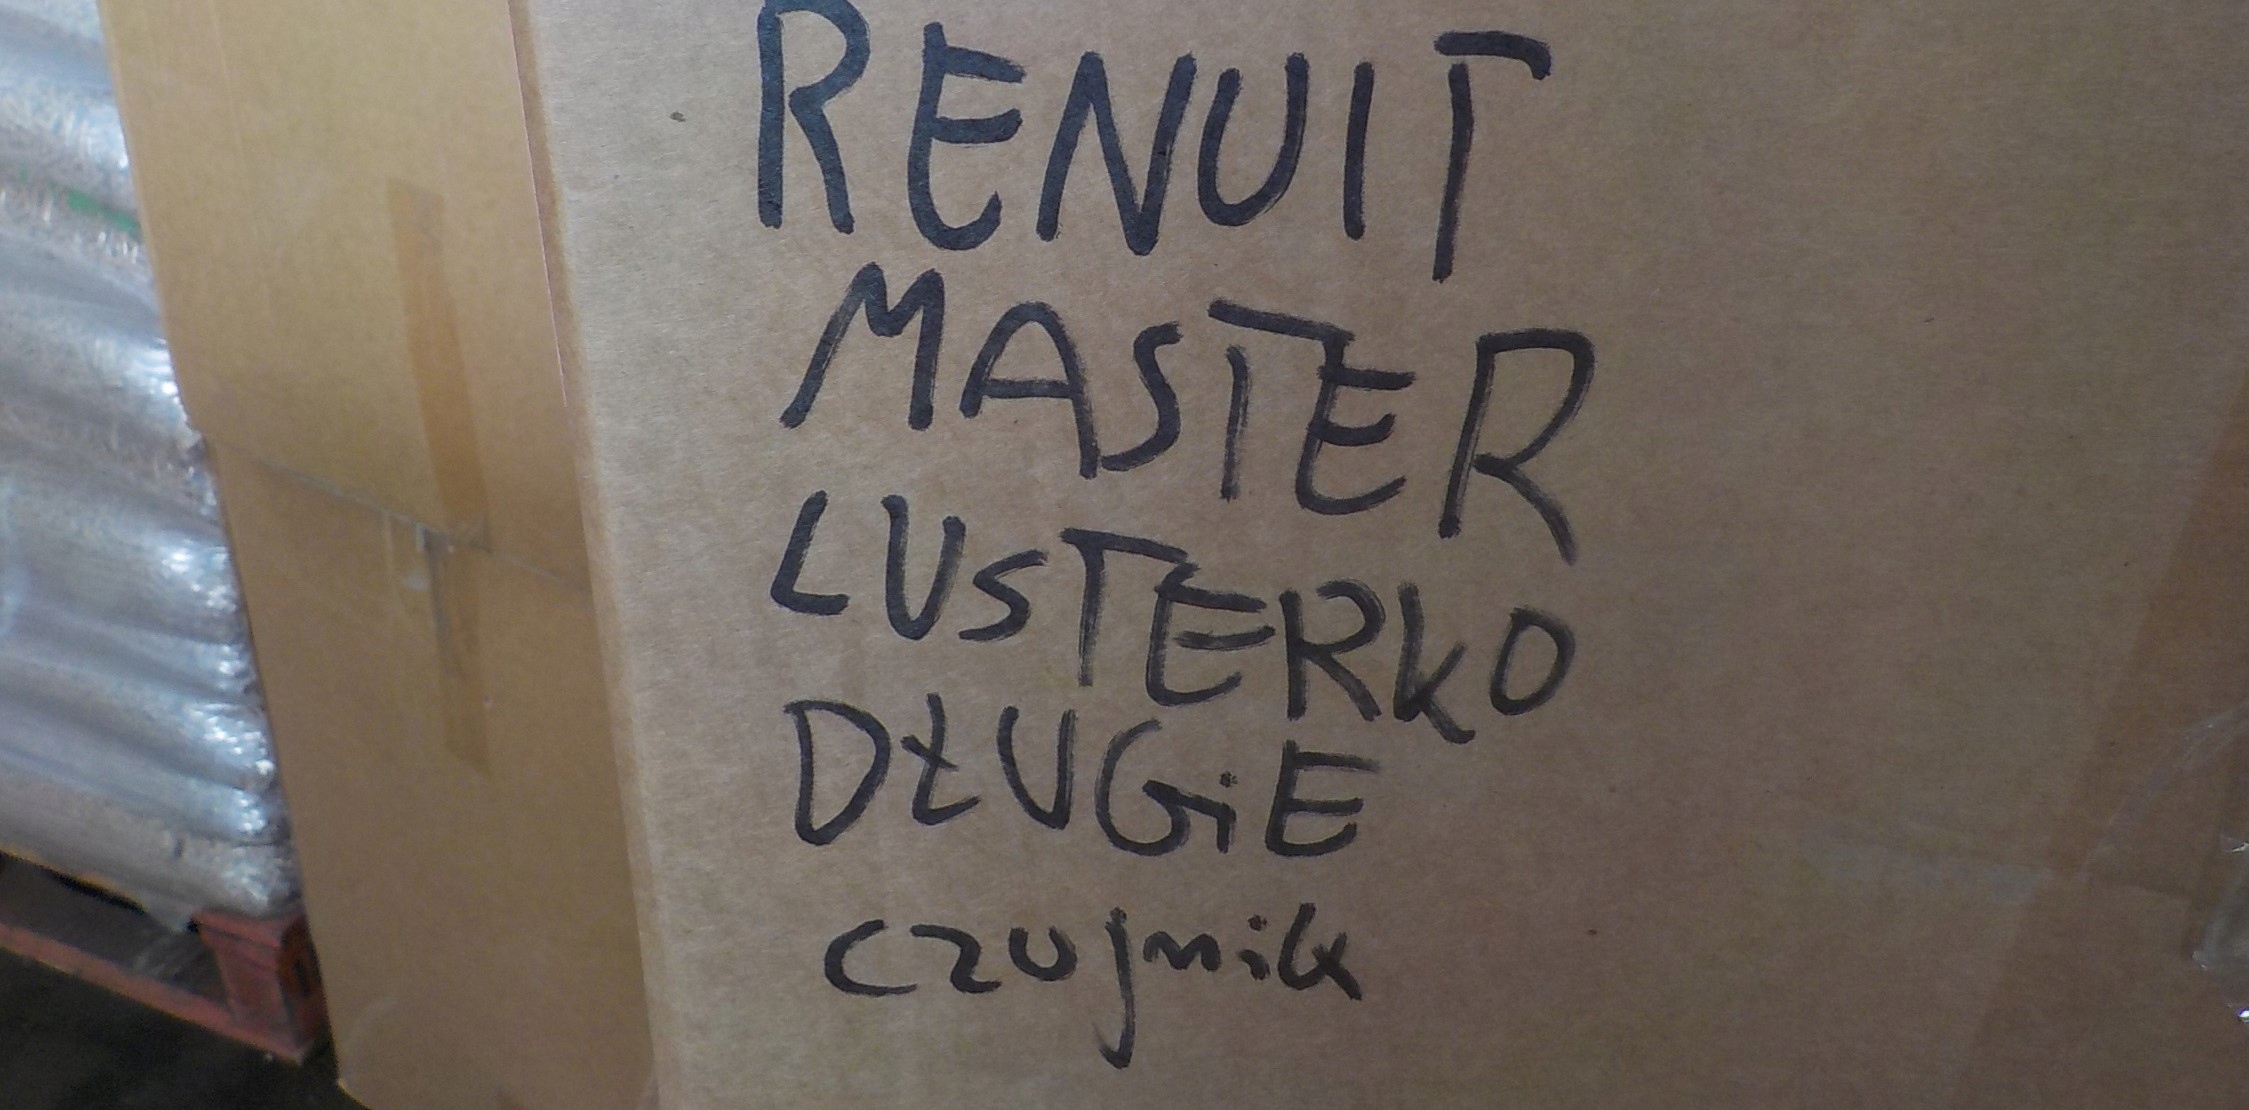 RENUIT
MASTER
LUSTERKO
DŁUGiE
czujnik